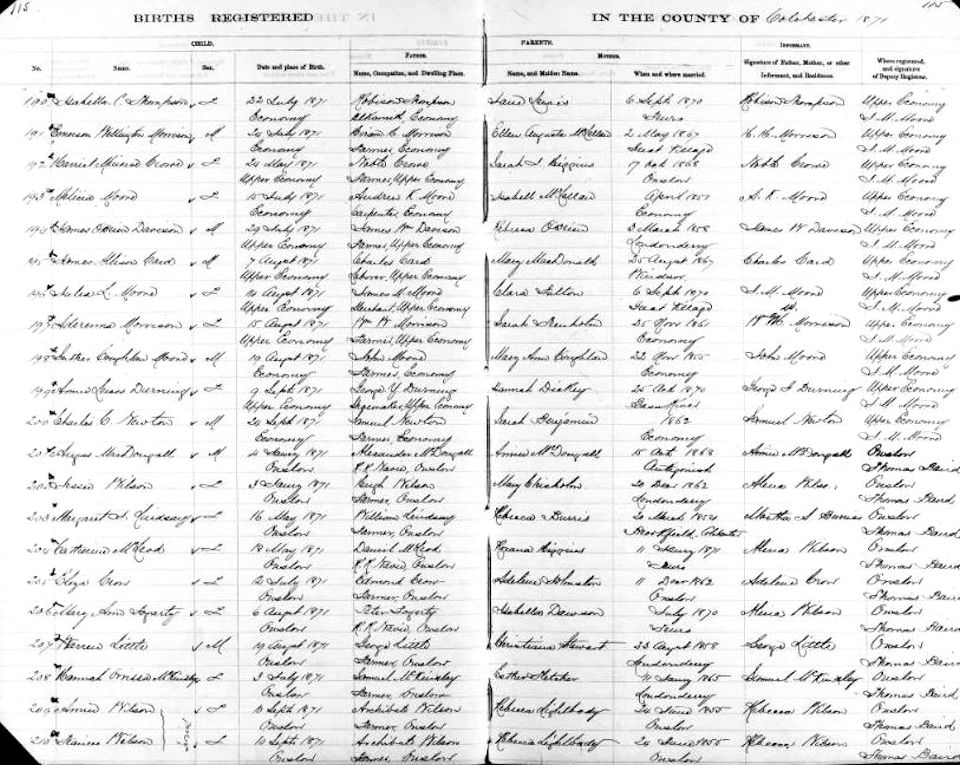 115
115
BIRTHS REGISTERED IN THE COUNTY OF Colchester 1871
CHILD. PARENTS. INFORMANT.
FATHER. MOTHER.
No. Name. Sex. Date and place of Birth. Name, Occupation, and Dwelling Place. Name, and Maiden Name. When and where married. Signature of Father, Mother, or other Informant, and Residence. Where registered, and signature of Deputy Registrar.
190 Isabella C. Thompson F 22 July 1871 Robison Thompson 6 Sept 1870 Robison Thompson Upper Economy
Economy Economy Truro
191 Emerson Wellington Morrison M 24 July 1871 Hiram C. Morrison Ellen Augusta McLellan 2 May 1867 Morrison Upper Economy
Economy Farmer, Economy Great Village
192 Harriet Crowe F 24 May 1871 Noble Crowe Sarah Higgins 17 Oct 1868 Noble Crowe Upper Economy
Upper Economy Farmer, Upper Economy Onslow
193 Moore F 15 July 1871 Andrew K Moore Isabell McLellan April 1851 A. K. Moore Upper Economy
Economy Carpenter, Economy Economy
194 James O'Brien Davison M 29 July 1871 James Wm Davison Rebecca O'Brien 3 March 1858 James W Davison Upper Economy
Upper Economy Farmer, Upper Economy Londonderry
195 James Allison Card M 7 August 1871 Charles Card Mary MacDonald 25 August 1867 Charles Card Upper Economy
Upper Economy Upper Economy Windsor
196 L. Moore F 14 August 1871 James M. Moore Clara Fulton 6 Sept 1870 J. M. Moore Upper Economy
Upper Economy Merchant, Upper Economy Great Village
197 Morrison F 15 August 1871 Wm W Morrison Sarah 25 Nov 1861 Morrison Upper Economy
Upper Economy Farmer, Upper Economy Economy
198 Luther Coughlan Moore M 19 August 1871 John Moore Mary Ann Coughlan 22 Nov 1855 John Moore Upper Economy
Economy Farmer, Economy Economy
199 Annie Durning F 9 Sept 1871 George Y Durning Hannah Dickey 25 Oct 1870 George Y Durning Upper Economy
Upper Economy Upper Economy
200 Charles C. Newton M 20 Sept 1871 Samuel Newton Sarah Benjamin 1862 Samuel Newton Upper Economy
Economy Farmer, Economy Economy
201 Angus MacDougall M 4 Jany 1871 Alexander McDougall Annie McDougall 15 Oct 1868 Annie McDougall Onslow
Onslow R.R. Navie, Onslow Antigonish Thomas Baird
202 Jessie Wilson F 3 Jany 1871 Hugh Wilson Mary Chisholm 20 Decr 1862 Wilson Onslow
Onslow Farmer, Onslow Londonderry Thomas Baird
203 Margaret J. Lindsay F 16 May 1871 William Lindsay Rebecca Burris 20 March 1854 Martha S Burris Onslow
Onslow Farmer, Onslow Thomas Baird
204 Catherine McLeod F 18 May 1871 Daniel McLeod Higgins 11 Jany 1871 Wilson Onslow
Onslow R.R. Navie, Onslow Truro Thomas Baird
205 Crow F 2 July 1871 Edmond Crow Adelene Johnston 11 Decr 1862 Adelene Crow Onslow
Onslow Farmer, Onslow Onslow Thomas Baird
206 Mary Ann Fogarty F 6 August 1871 Peter Fogarty Isabella Dawson July 1870 Wilson Onslow
Onslow R.R. Navie, Onslow Truro Thomas Baird
207 Warren Little M 19 August 1871 George Little Christiana Stewart 23 August 1858 George Little Onslow
Onslow Farmer, Onslow Londonderry Thomas Baird
208 Hannah McKinley F 3 July 1871 Samuel McKinley Esther Fletcher 11 Jany 1865 Samuel McKinley Onslow
Onslow Farmer, Onslow Londonderry Thomas Baird
209 Annie Wilson F 10 Sept 1871 Archibald Wilson Rebecca Lightbody 24 June 1855 Rebecca Wilson Onslow
Onslow Farmer, Onslow Onslow Thomas Baird
210 Wilson F 10 Sept 1871 Archibald Wilson Rebecca Lightbody 24 June 1855 Rebecca Wilson Onslow
Onslow Farmer, Onslow Onslow Thomas Baird